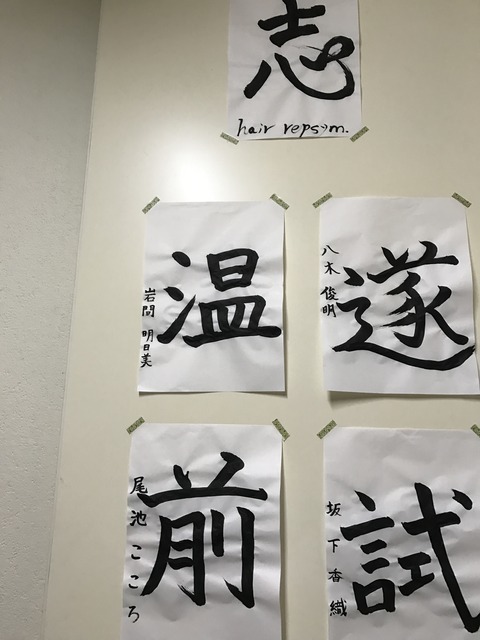 志
hair repsym.
温
岩間 明日美
遂
八木 俊明
前
尾池 こころ
試
坂下香織